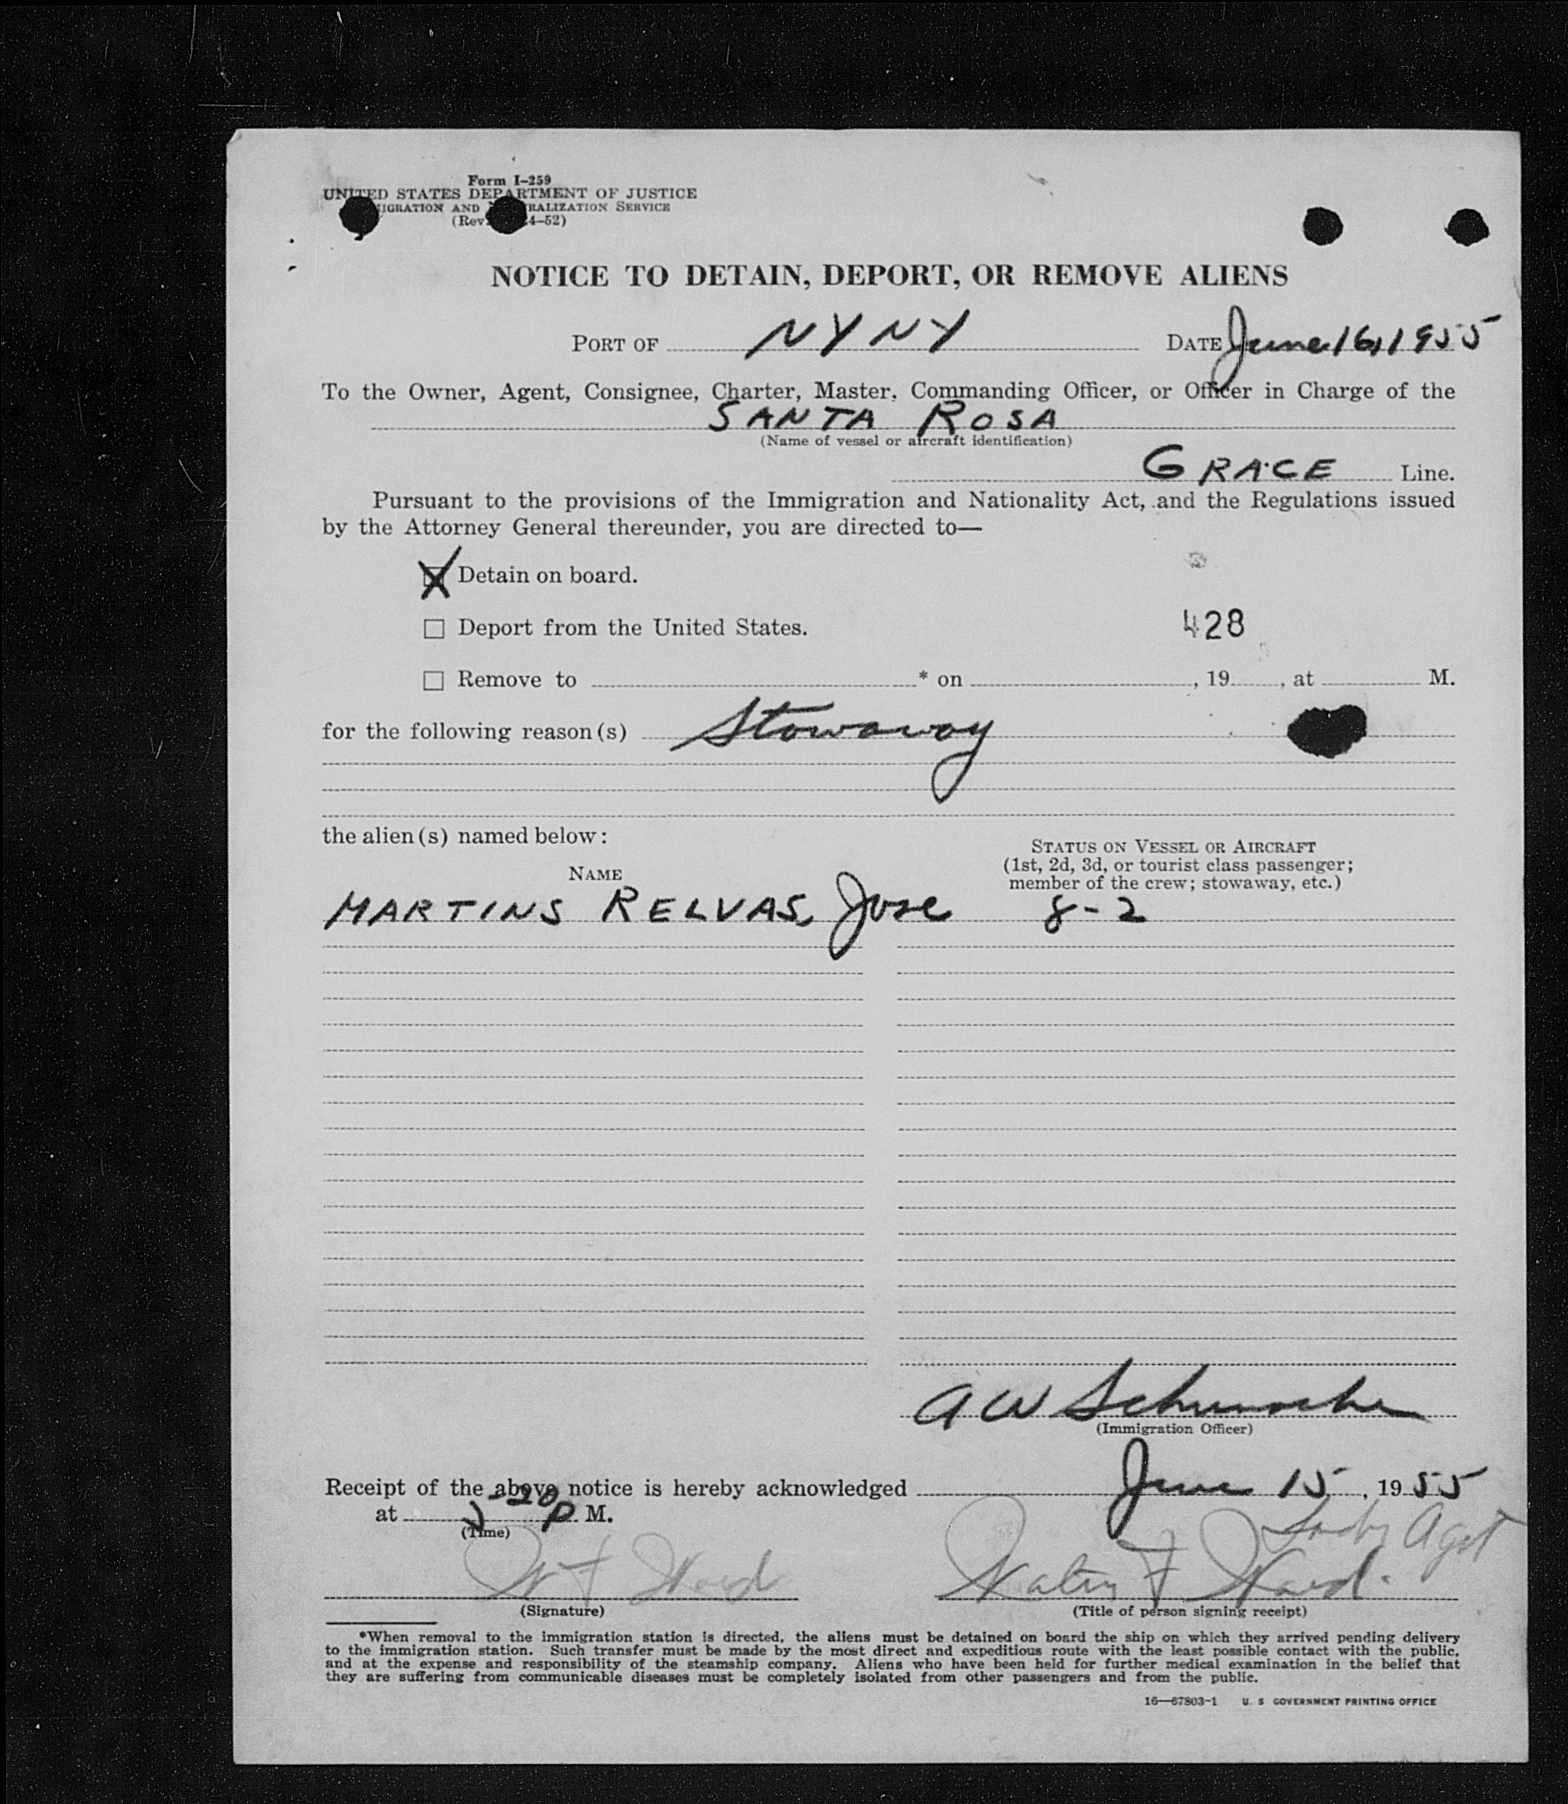 Form I-259
UNITED STATES DEPARTMENT OF JUSTICE
IGRATION AND RALIZATION SERVICE
(Rev. 4-52)
NOTICE TO DETAIN, DEPORT, OR REMOVE ALIENS
PORT OF NYNY DATE June 16, 1955
To the Owner, Agent, Consignee, Charter, Master, Commanding Officer, or Officer in Charge of the
SANTA ROSA
(Name of vessel or aircraft identification)
GRACE Line.
Pursuant to the provisions of the Immigration and Nationality Act, and the Regulations issued
by the Attorney General thereunder, you are directed to—
☒ Detain on board.
☐ Deport from the United States. 428
☐ Remove to * on , 19 , at M.
for the following reason(s) Stowaway
the alien(s) named below:
STATUS ON VESSEL OR AIRCRAFT
(1st, 2d, 3d, or tourist class passenger;
member of the crew; stowaway, etc.)
NAME
MARTINS RELVAS, Jose 8-2
A W
(Immigration Officer)
Receipt of the above notice is hereby acknowledged June 15, 1955
at 5-20 P. M.
(Time)
Agt
W F Ward F Ward.
(Signature) (Title of person signing receipt)
*When removal to the immigration station is directed, the aliens must be detained on board the ship on which they arrived pending delivery
to the immigration station. Such transfer must be made by the most direct and expeditious route with the least possible contact with the public,
and at the expense and responsibility of the steamship company. Aliens who have been held for further medical examination in the belief that
they are suffering from communicable diseases must be completely isolated from other passengers and from the public.
16—67803-1 U. S GOVERNMENT PRINTING OFFICE